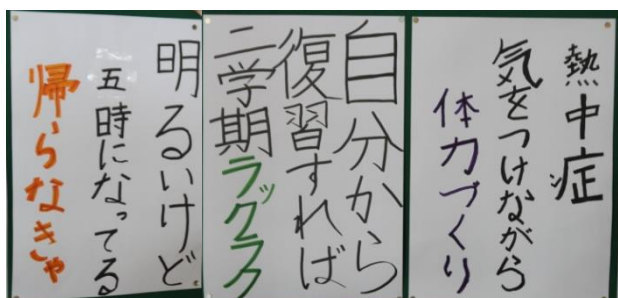 熱中症
気をつけながら
体力づくり
自分から
復習すれば
二学期ラックラク
明るいけど
五時になってる
帰らなきゃ